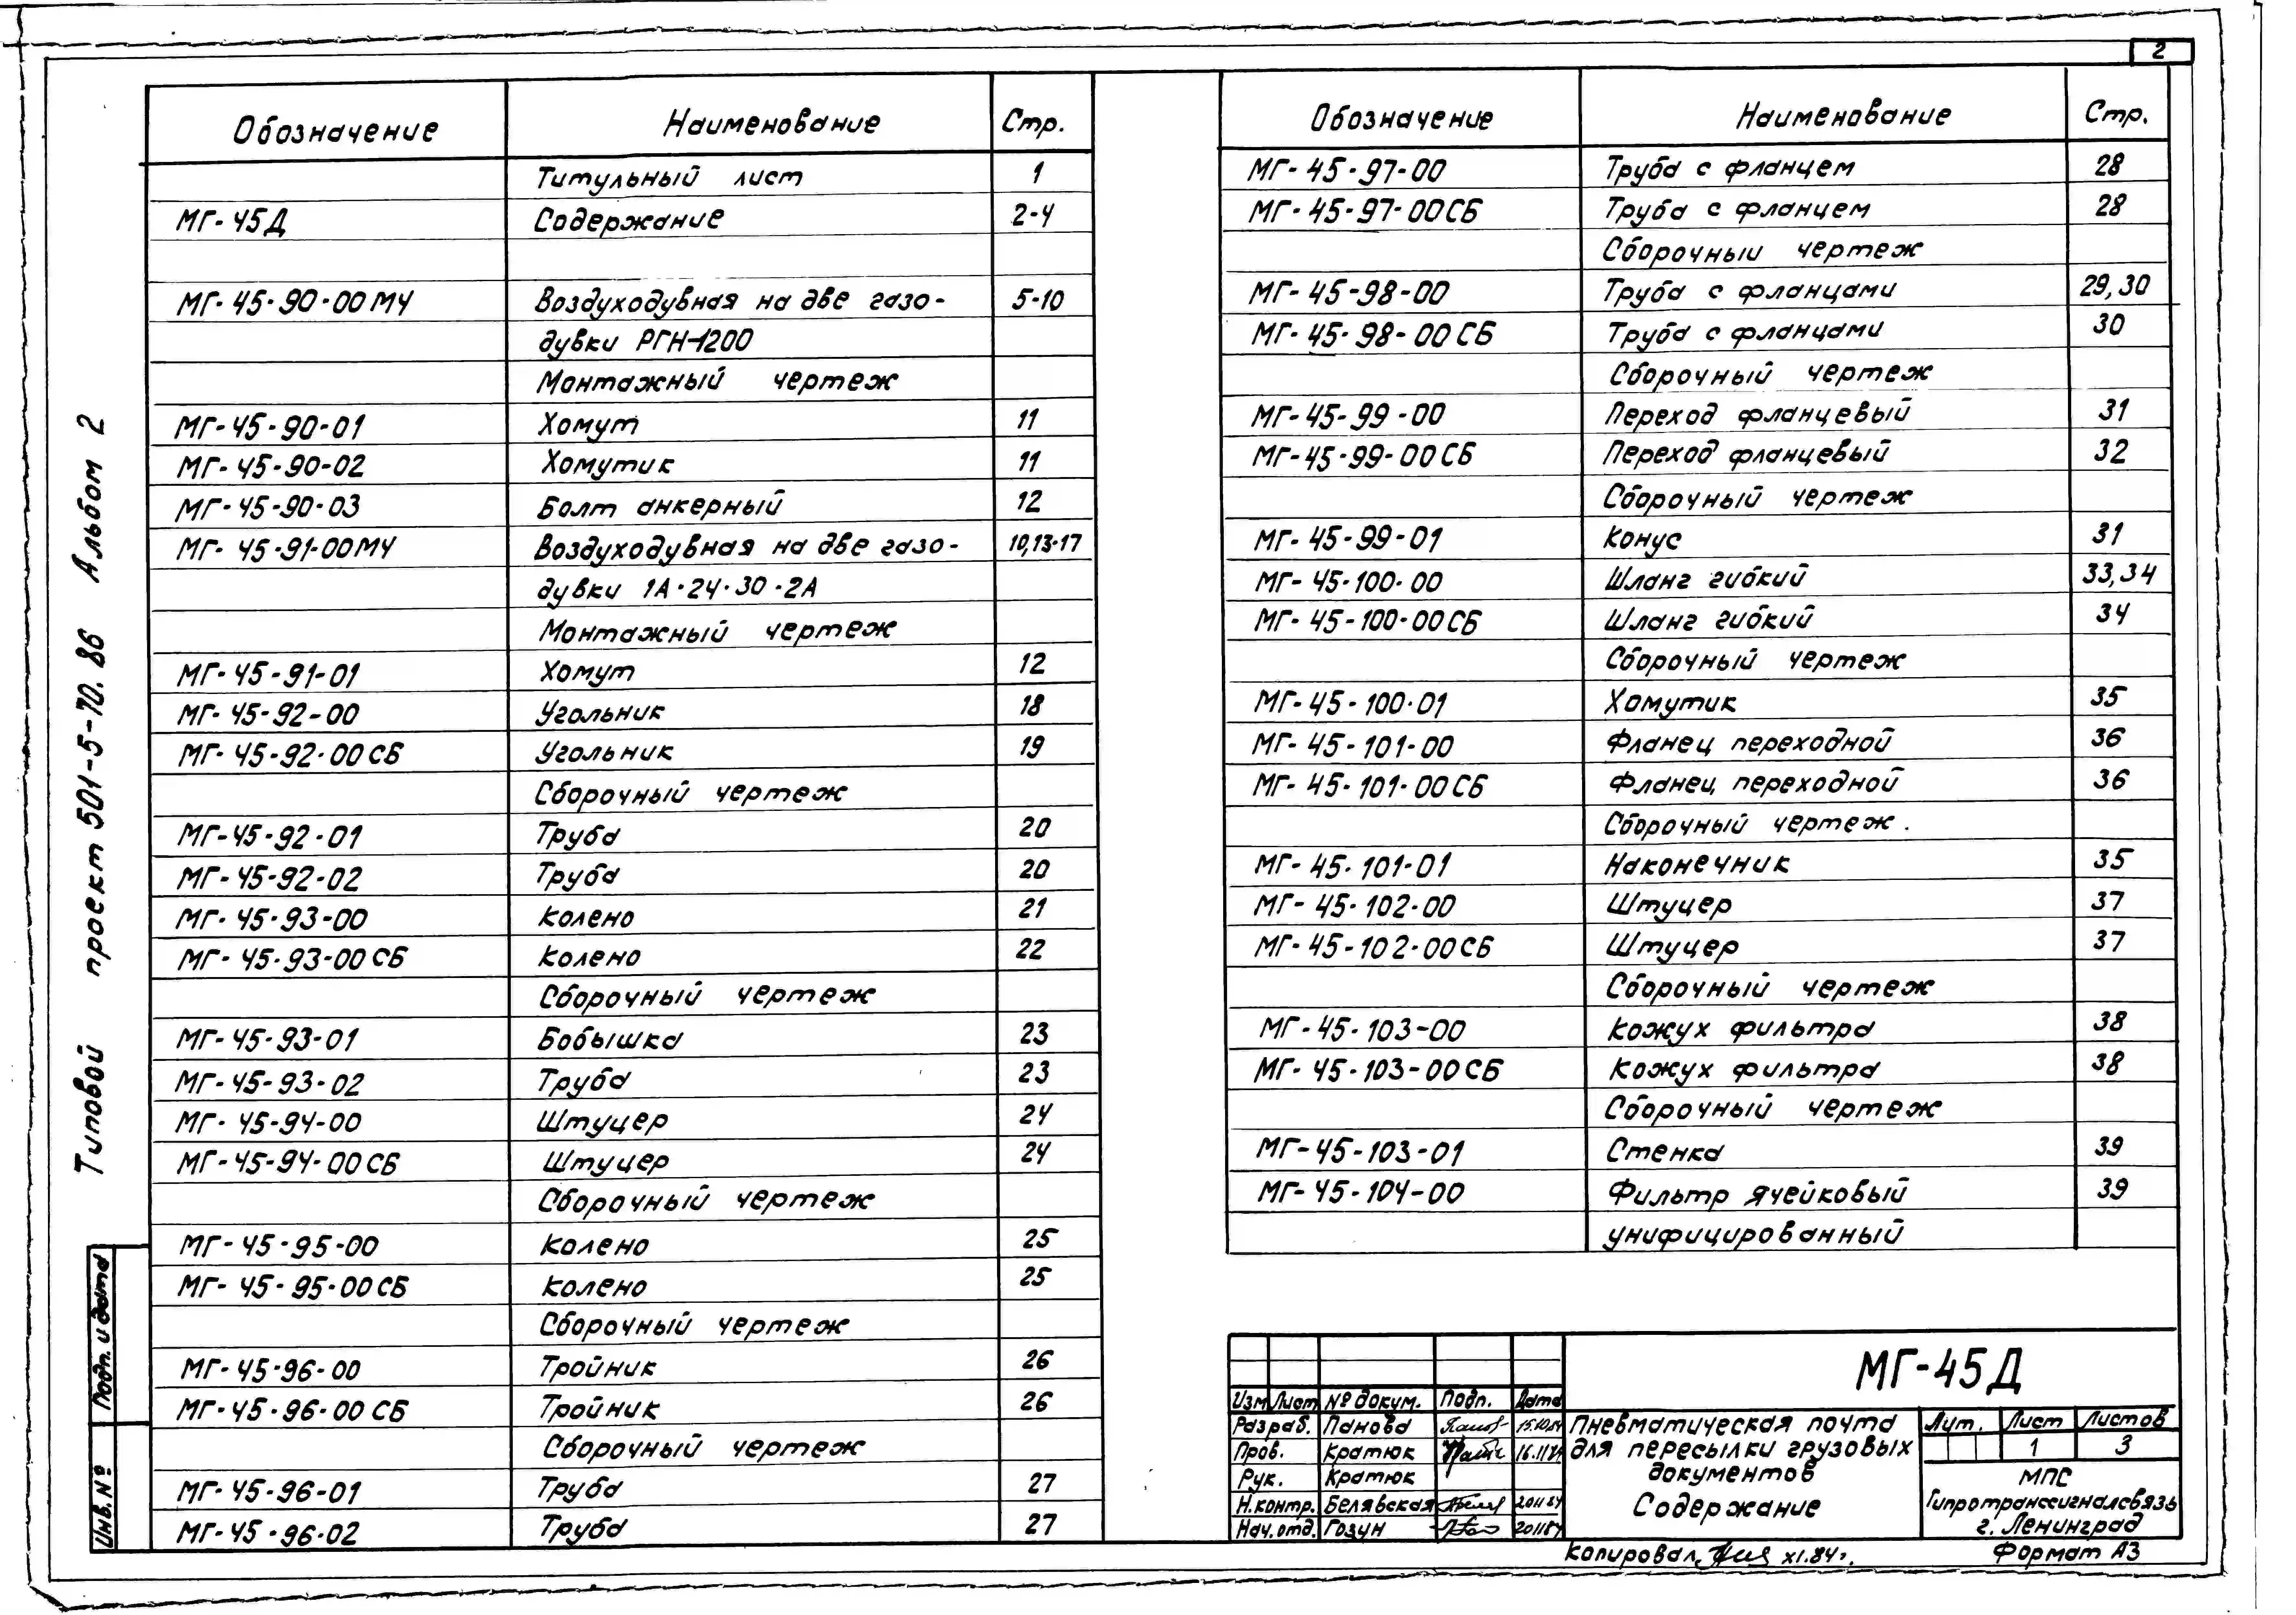 2
Обозначение Наименование Стр.
Титульный лист 1
МГ-45Д Содержание 2-4
МГ-45-90-00МЧ Воздуходувная на две газо- 5-10
дувки РГН-1200
Монтажный чертеж
МГ-45-90-01 Хомут 11
МГ-45-90-02 Хомутик 11
МГ-45-90-03 Болт анкерный 12
МГ-45-91-00МЧ Воздуходувная на две газо- 10,13-17
дувки 1А-24-30-2А
Монтажный чертеж
МГ-45-91-01 Хомут 12
МГ-45-92-00 Угольник 18
МГ-45-92-00СБ Угольник 19
Сборочный чертеж
МГ-45-92-01 Труба 20
МГ-45-92-02 Труба 20
МГ-45-93-00 Колено 21
МГ-45-93-00СБ Колено 22
Сборочный чертеж
МГ-45-93-01 Бобышка 23
МГ-45-93-02 Труба 23
МГ-45-94-00 Штуцер 24
МГ-45-94-00СБ Штуцер 24
Сборочный чертеж
МГ-45-95-00 Колено 25
МГ-45-95-00СБ Колено 25
Сборочный чертеж
МГ-45-96-00 Тройник 26
МГ-45-96-00СБ Тройник 26
Сборочный чертеж
МГ-45-96-01 Труба 27
МГ-45-96-02 Труба 27
Обозначение Наименование Стр.
МГ-45-97-00 Труба с фланцем 28
МГ-45-97-00СБ Труба с фланцем 28
Сборочный чертеж
МГ-45-98-00 Труба с фланцами 29,30
МГ-45-98-00СБ Труба с фланцами 30
Сборочный чертеж
МГ-45-99-00 Переход фланцевый 31
МГ-45-99-00СБ Переход фланцевый 32
Сборочный чертеж
МГ-45-99-01 Конус 31
МГ-45-100-00 Шланг гибкий 33,34
МГ-45-100-00СБ Шланг гибкий 34
Сборочный чертеж
МГ-45-100-01 Хомутик 35
МГ-45-101-00 Фланец переходной 36
МГ-45-101-00СБ Фланец переходной 36
Сборочный чертеж.
МГ-45-101-01 Наконечник 35
МГ-45-102-00 Штуцер 37
МГ-45-102-00СБ Штуцер 37
Сборочный чертеж
МГ-45-103-00 Кожух фильтра 38
МГ-45-103-00СБ Кожух фильтра 38
Сборочный чертеж
МГ-45-103-01 Стенка 39
МГ-45-104-00 Фильтр ячейковый 39
унифицированный
Типовой проект 501-5-70.86 Альбом 2
Подп. и дата
Инв. №
МГ-45Д
Изм Лист № докум. Подп. Дата
Разраб. Панова 15.10.84
Пров. Кратюк 16.11.84
Рук. Кратюк
Н.контр. Белявская 20.11.84
Нач.отд. Гозун 20.11.84
Пневматическая почта
для пересылки грузовых
документов
Содержание
Лит. Лист Листов
1 3
МПС
Гипротранссигналсвязь
г. Ленинград
Копировал XI.84г. Формат А3